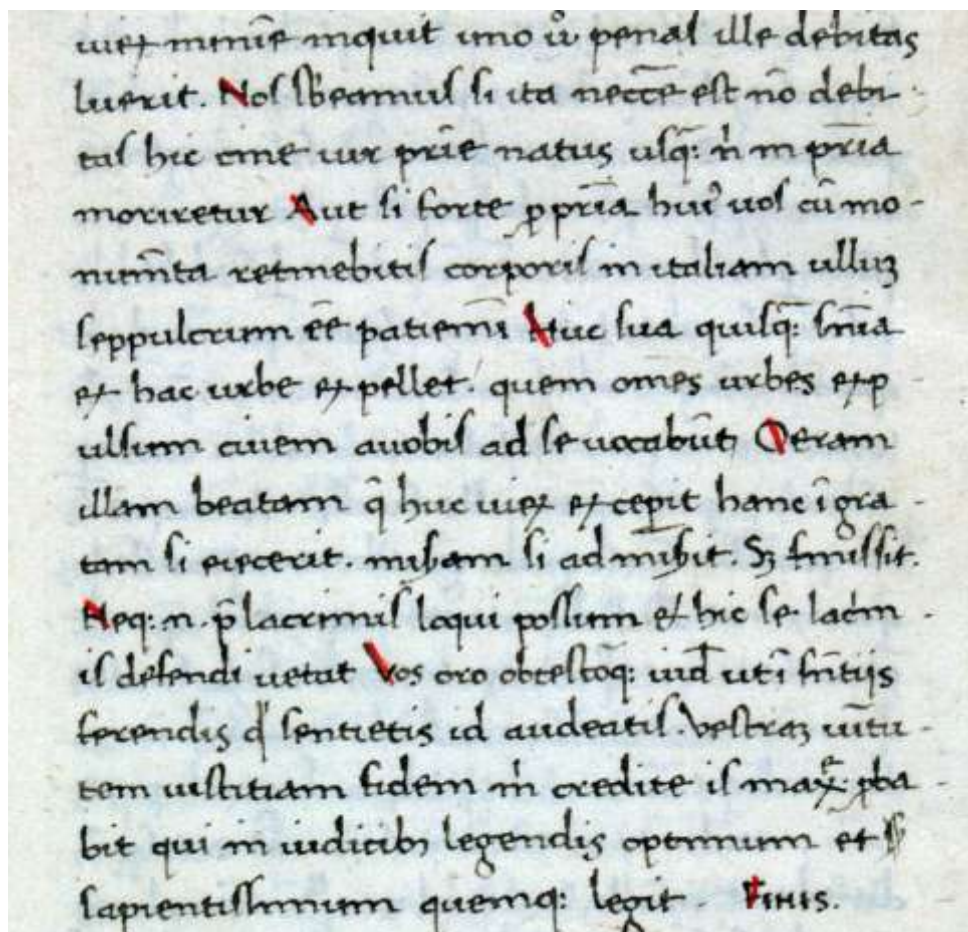 uiex minīe inquit imo u̾ penas ille debitas
luerit. Nos s̄beamus si ita necc̄e est nō debi-
tas hic cine uir pr̄ie natus usq̄: n̄ in pr̄ia
moriretur Aut si forte ꝓ pr̄ia huiꝰ uos cū mo-
num̄ta retinebitis corporis in italiam ulluȝ
seppulcrum ēē patiemi̅ Huc sua quisq̄: sn̄ia
ex hac urbe expellet. quem om̄es urbes exp
ulsum ciuem auobis ad se uocabūt, Oeram
illam beatam q̄ huc uiex excepit hanc īgra-
tam si eiecerit. mis̄am si admis̄it. Sȝ finissit.
Neq: .n. p̄ lacrimis loqui possum et hic se lac̄im-
is defendi uetat Vos oro obtestoq: iud̄ ut ī sn̄tijs
ferendis qd̾ sentietis id audeatis. Vestraȝ uīrtu-
tem iustitiam fidem m̄ credite is max̄e ꝓba
bit qui in iudicibȝ legendis optimum et
sapientissimum quemq: legit. Finis.